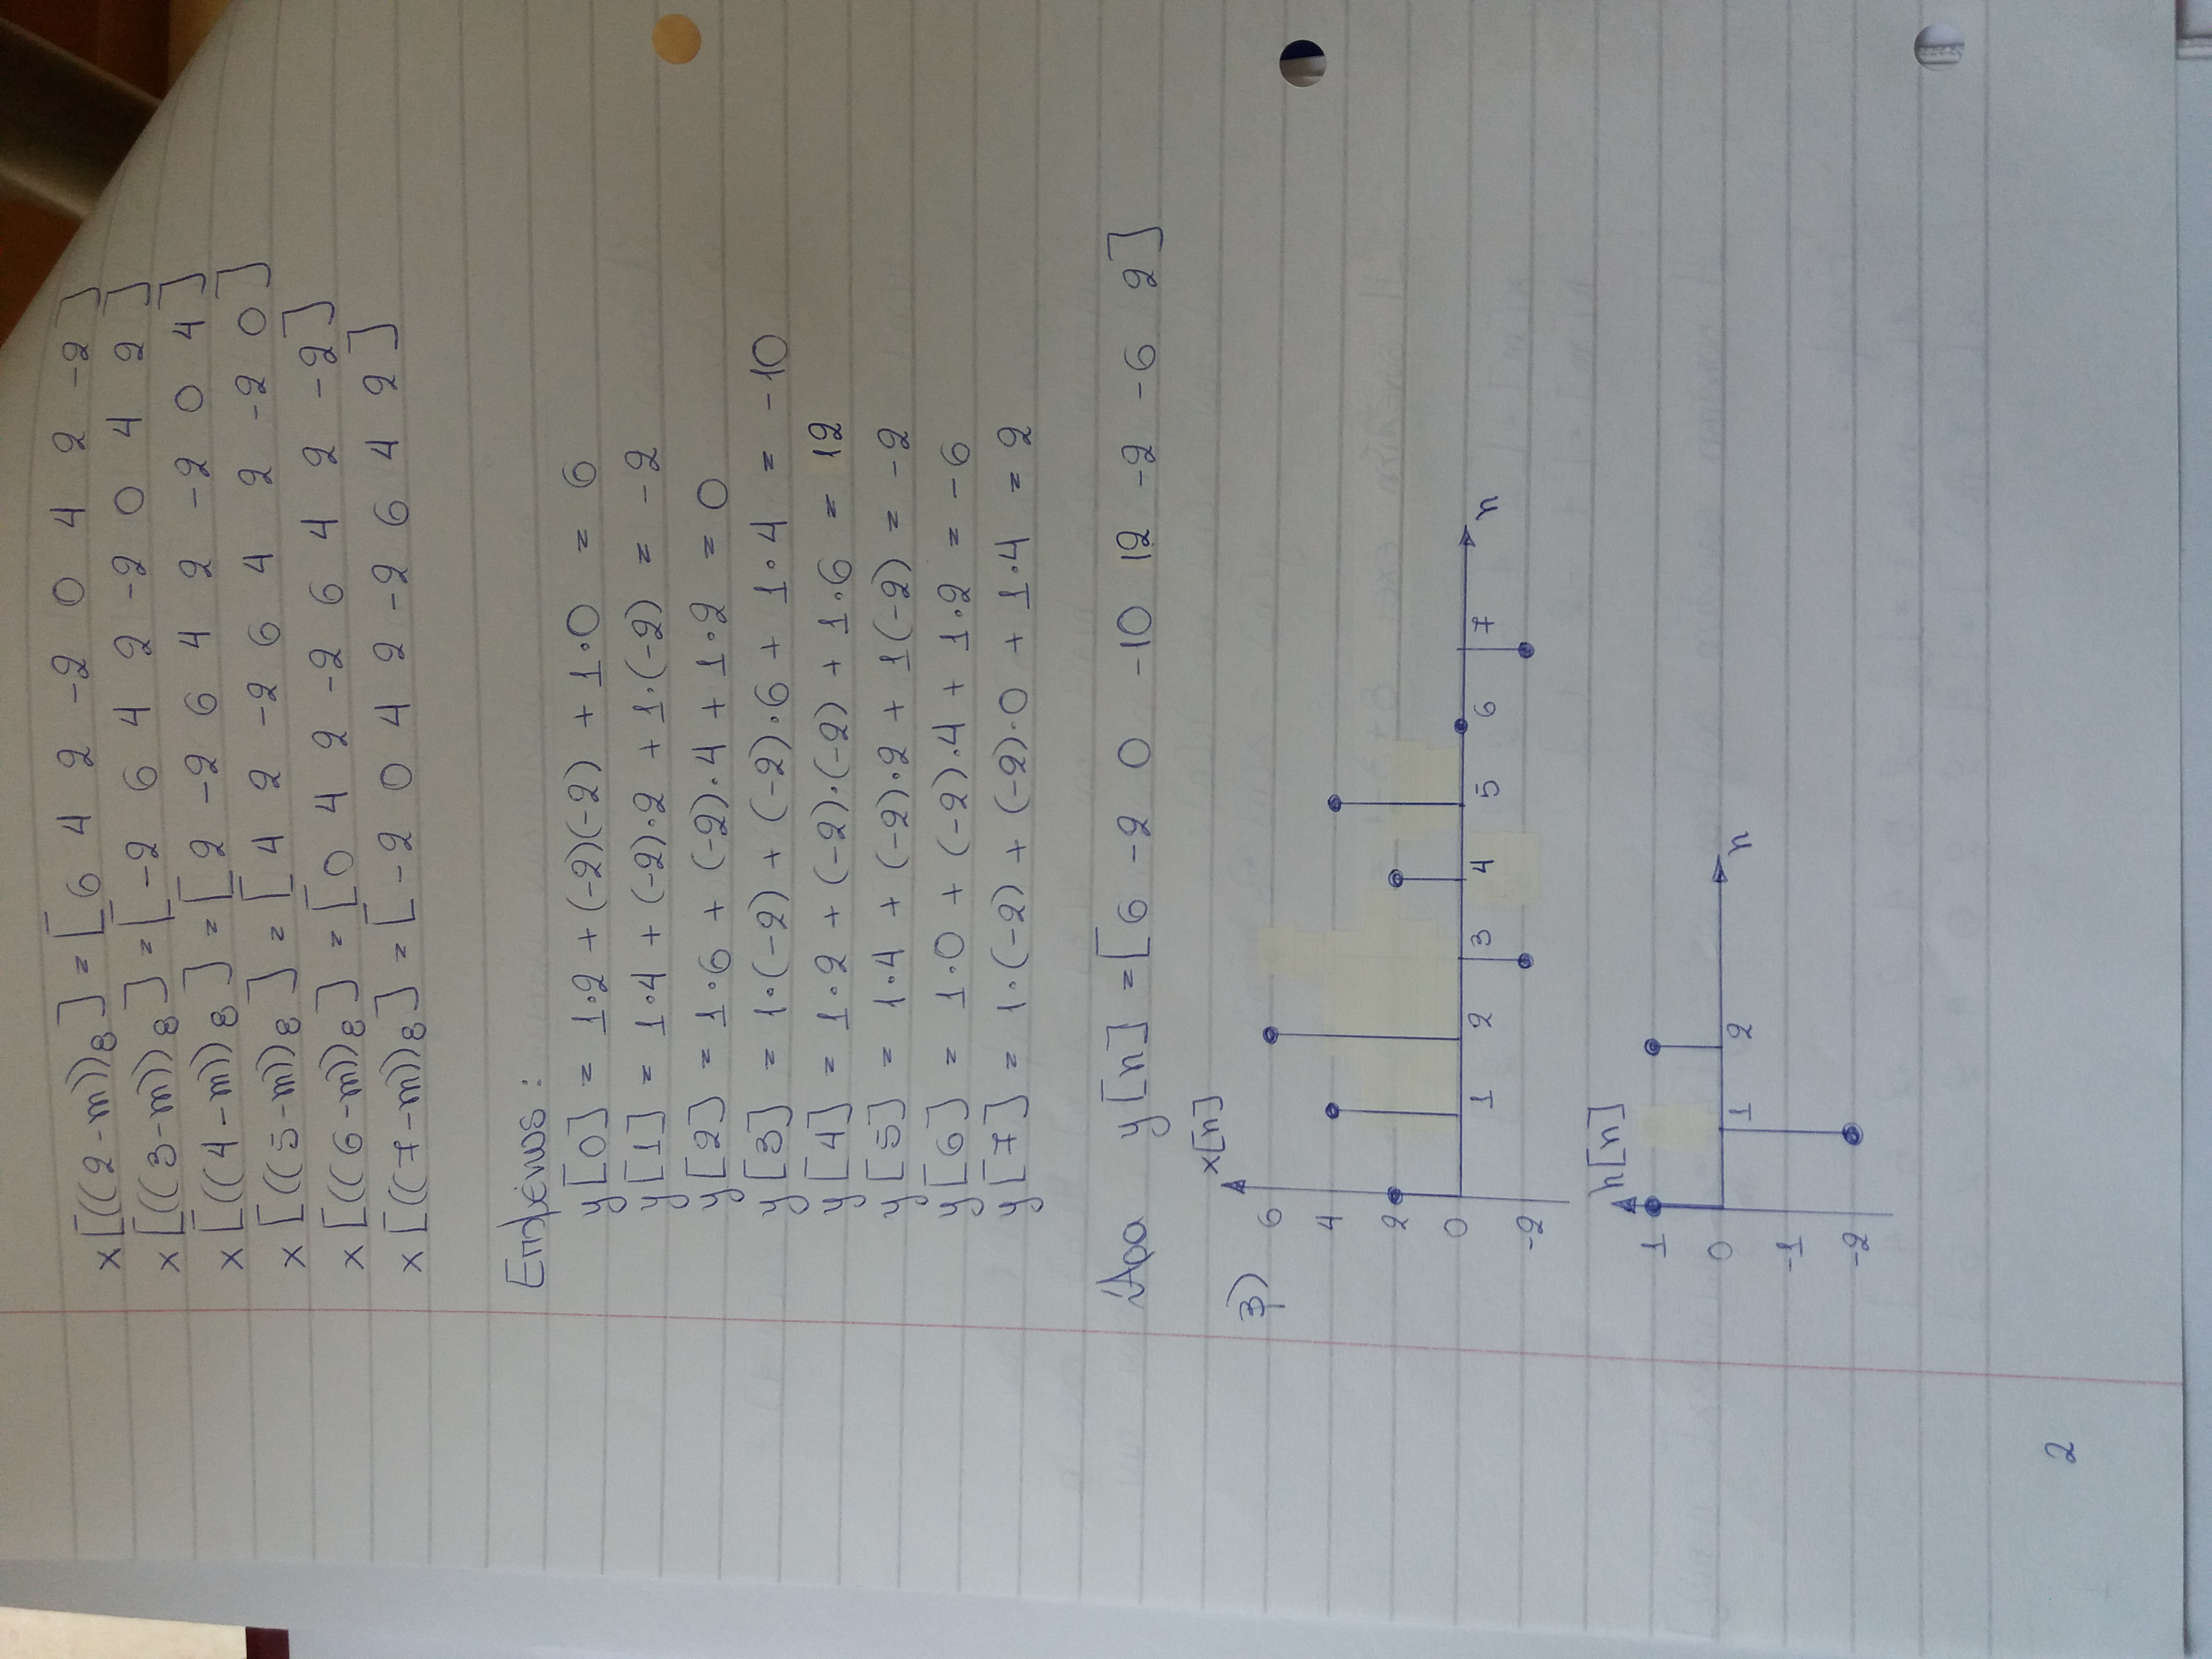 x[((2-m))8] = [6 4 2 -2 0 4 2 -2]
x[((3-m))8] = [-2 6 4 2 -2 0 4 2]
x[((4-m))8] = [2 -2 6 4 2 -2 0 4]
x[((5-m))8] = [4 2 -2 6 4 2 -2 0]
x[((6-m))8] = [0 4 2 -2 6 4 2 -2]
x[((7-m))8] = [-2 0 4 2 -2 6 4 2]
Επομένως :
y[0] = 1·2 + (-2)(-2) + 1·0 = 6
y[1] = 1·4 + (-2)·2 + 1·(-2) = -2
y[2] = 1·6 + (-2)·4 + 1·2 = 0
y[3] = 1·(-2) + (-2)·6 + 1·4 = -10
y[4] = 1·2 + (-2)·(-2) + 1·6 = 12
y[5] = 1·4 + (-2)·2 + 1(-2) = -2
y[6] = 1·0 + (-2)·4 + 1·2 = -6
y[7] = 1·(-2) + (-2)·0 + 1·4 = 2
Άρα y[n] = [6 -2 0 -10 12 -2 -6 2]
x[n]
3)
6
4
2
0
1 2 3 4 5 6 7 n
-2
h[n]
1
0
1 2 n
-1
-2
2